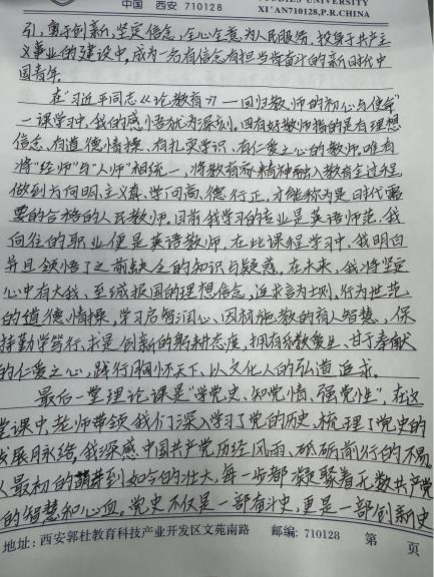 中国 西安 710128
STUDIES UNIVERSITY
XI'AN710128,P.R.CHINA
引,勇于创新,坚定信念,全心全意为人民服务,投身于共产主
义事业的建设中,成为一名有信念有担当肯奋斗的新时代中
国青年。
在“习近平同志《论教育》——回归教师的初心与使命”
一课学习中,我的感悟尤为深刻。四有好教师指的是有理想
信念、有道德情操、有扎实学识、有仁爱之心的教师。唯有
将“经师”与“人师”相统一,将教育家精神融入教育全过程,
做到方向明、主义真、学问高、德行正,才能称为是时代需
要的合格的人民教师。因为我学习的专业是英语师范,我
向往的职业便是英语教师,在此课程学习中,我明白
并且领悟了之前缺乏的知识与疑惑。在未来,我将坚定
心中有大我、至诚报国的理想信念,追求言为士则、行为世范
的道德情操,学习启智润心、因材施教的育人智慧,保
持勤学笃行、求是创新的躬耕态度,拥有乐教爱生、甘于奉献
的仁爱之心,践行胸怀天下、以文化人的弘道追求。
最后一堂理论课是“学党史、知党情、强党性”,在这
堂课中,老师带领我们深入学习了党的历史,梳理了党史的
发展脉络,我深感中国共产党历经风雨、砥砺前行的不易。
从最初的萌芽到如今的壮大,每一步都凝聚着无数共产党
的智慧和心血。党史不仅是一部奋斗史,更是一部创新史
地址:西安郭杜教育科技产业开发区文苑南路 邮编:710128 第 页